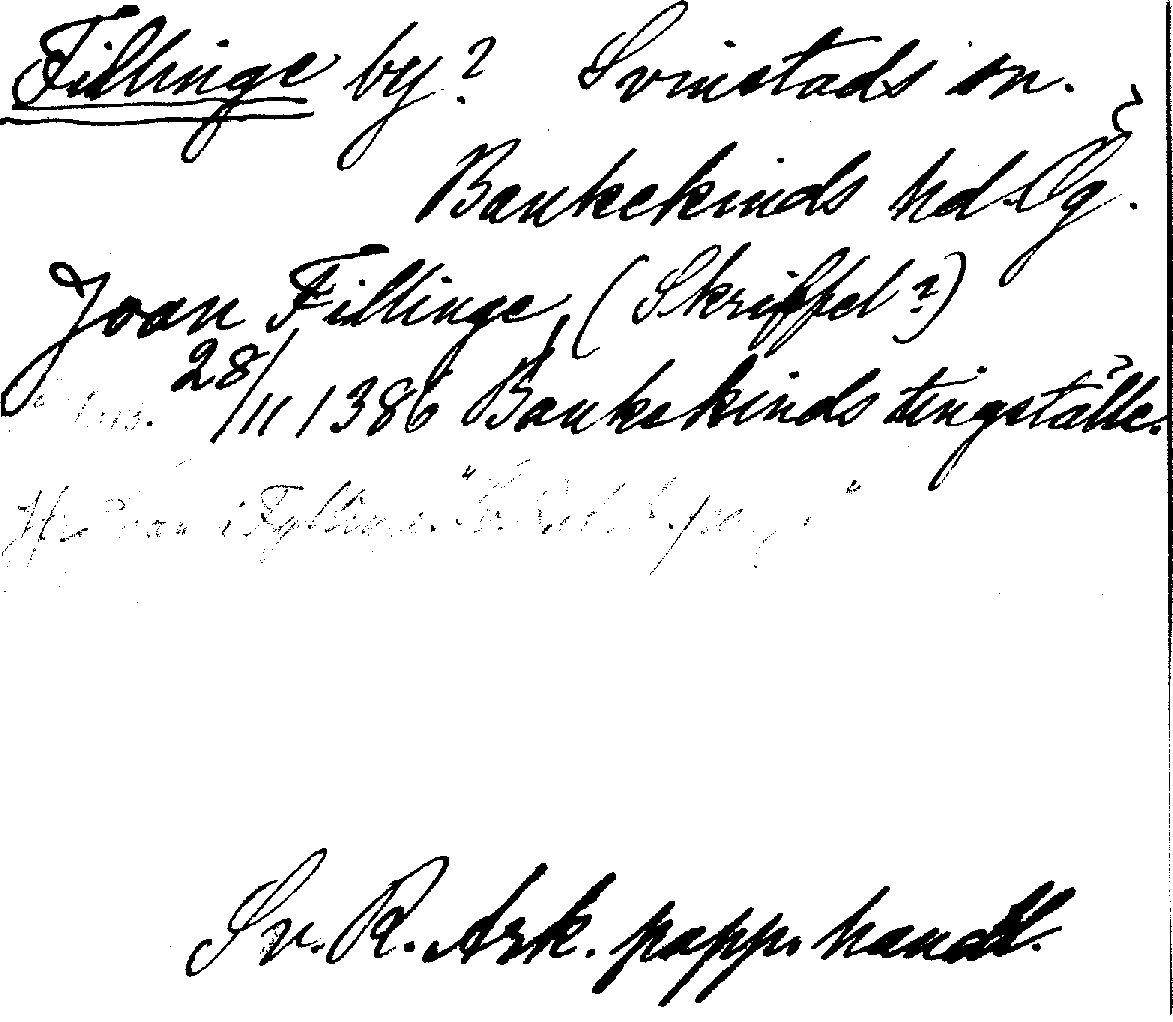 Fillinge by? Svinstads sn.
Bankekinds hd. Ög.
Joan Fillinge, (Skriffel?)
28/11 1386 Bankekinds tingställe.
i Fyllinge
Sv. R. Ark. papp. handl.